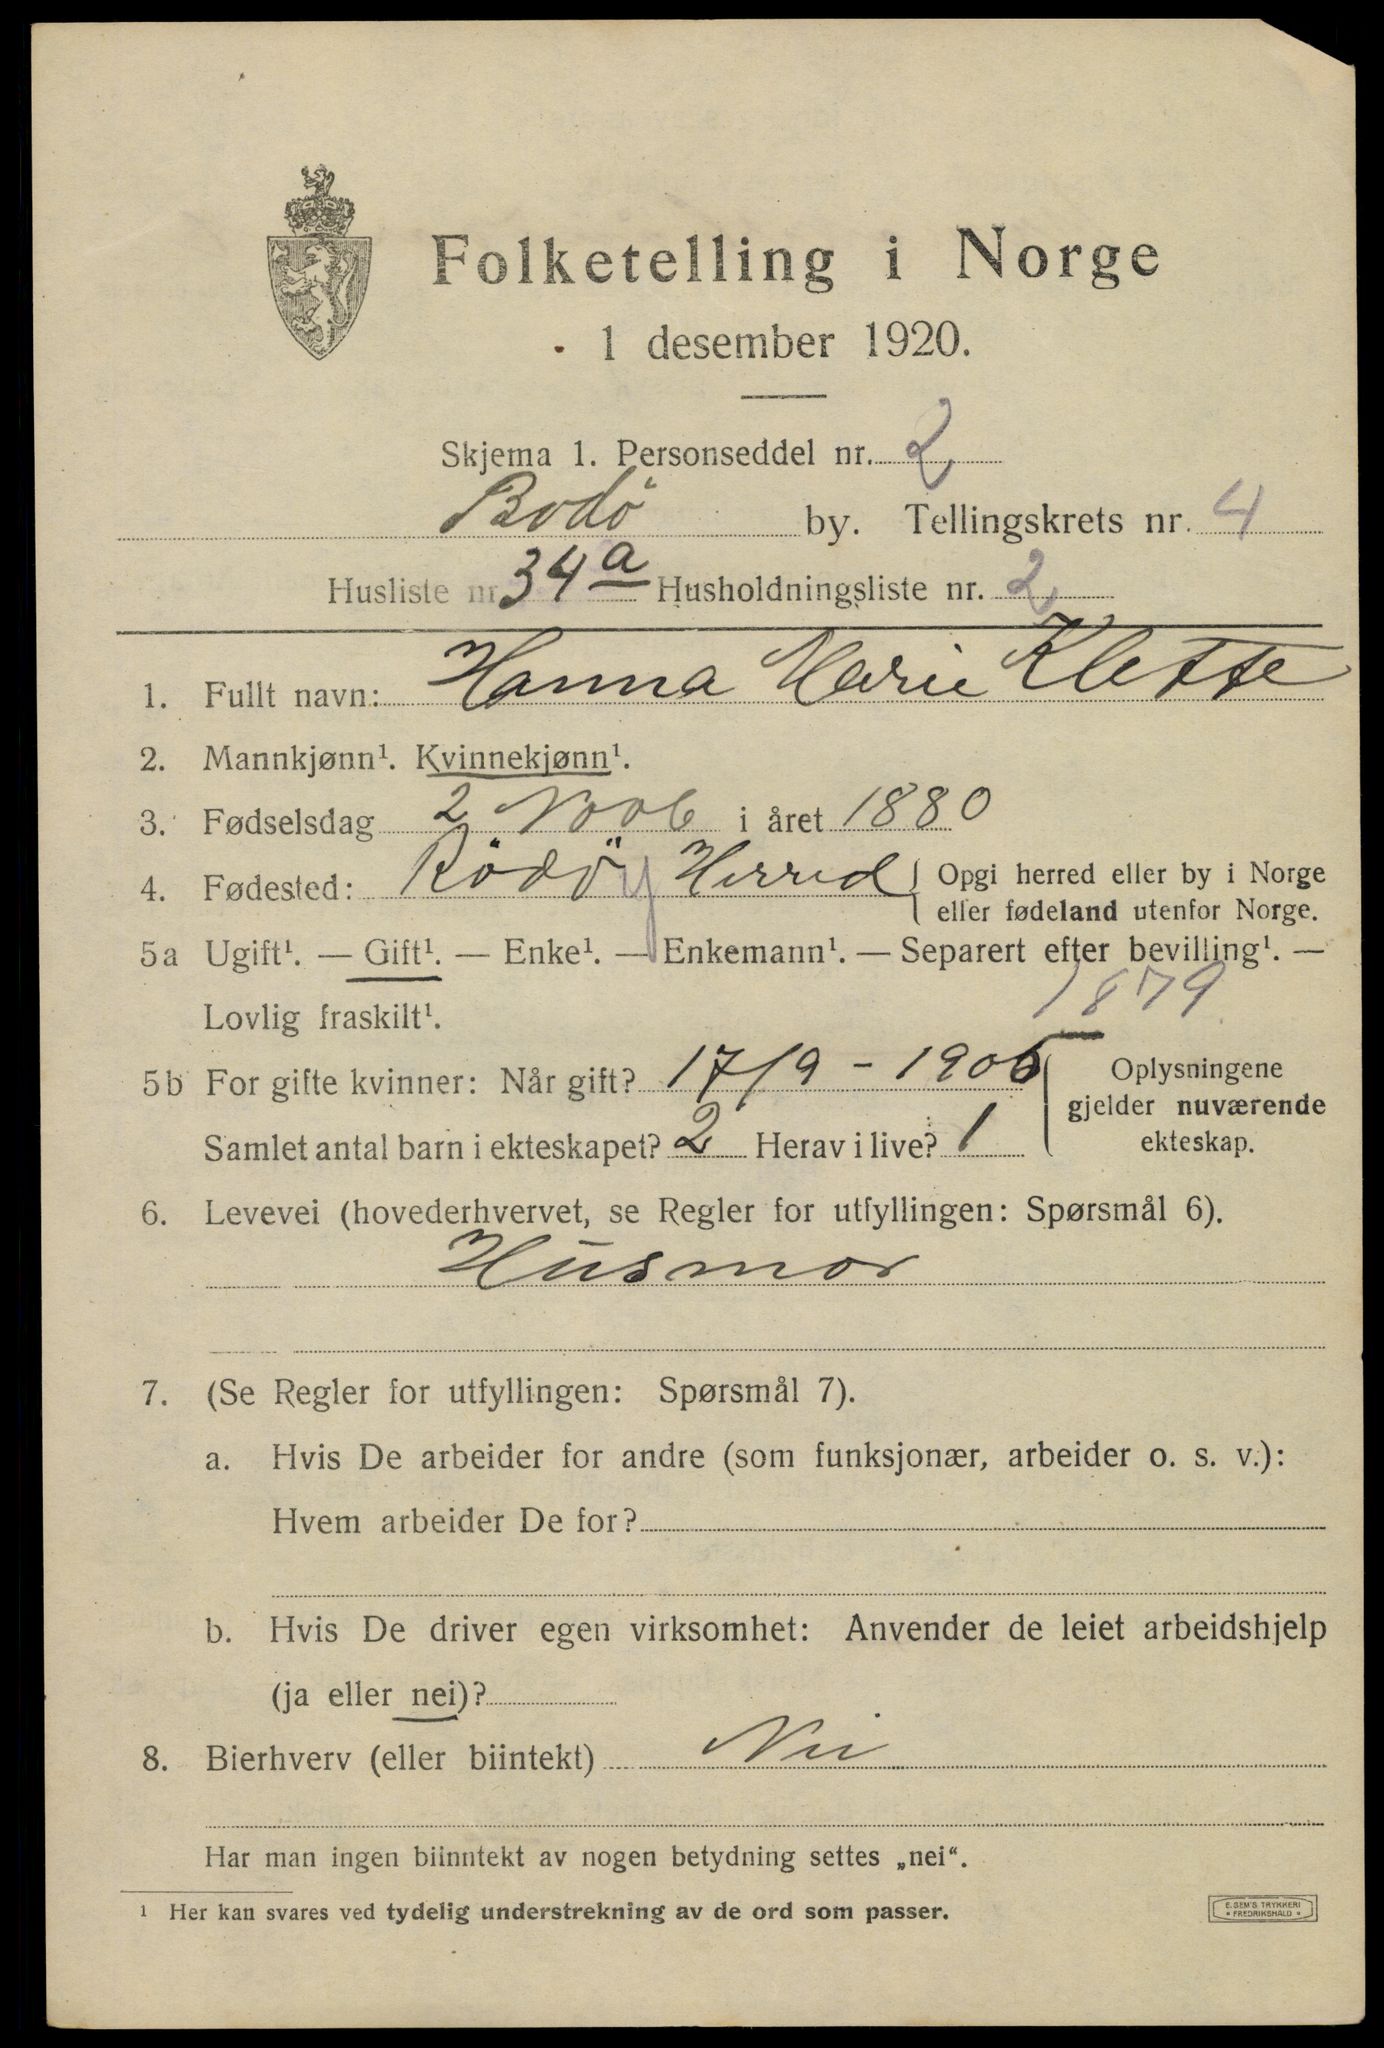 Folketelling i Norge
1 desember 1920.
Skjema 1. Personseddel nr. 2
Bodö by. Tellingskrets nr. 4
Husliste nr. 34a Husholdningsliste nr. 2
1. Fullt navn: Hanna Marie Klette
2. Mannkjønn¹. Kvinnekjønn¹.
3. Fødselsdag 2 Novb i året 1880
4. Fødested: Rödöy Herred Opgi herred eller by i Norge
eller fødeland utenfor Norge.
5a Ugift¹. — Gift¹. — Enke¹. — Enkemann¹. — Separert efter bevilling¹. —
Lovlig fraskilt¹. 1879
5b For gifte kvinner: Når gift? 17/9 - 1906 Oplysningene
gjelder nuværende
Samlet antal barn i ekteskapet? 2 Herav i live? 1 ekteskap.
6. Levevei (hovederhvervet, se Regler for utfyllingen: Spørsmål 6).
Husmor
7. (Se Regler for utfyllingen: Spørsmål 7).
a. Hvis De arbeider for andre (som funksjonær, arbeider o. s. v.):
Hvem arbeider De for?
b. Hvis De driver egen virksomhet: Anvender de leiet arbeidshjelp
(ja eller nei)?
8. Bierhverv (eller biintekt) Nei
Har man ingen biinntekt av nogen betydning settes „nei“.
¹ Her kan svares ved tydelig understrekning av de ord som passer.
E. SEM'S TRYKKERI
FREDRIKSHALD